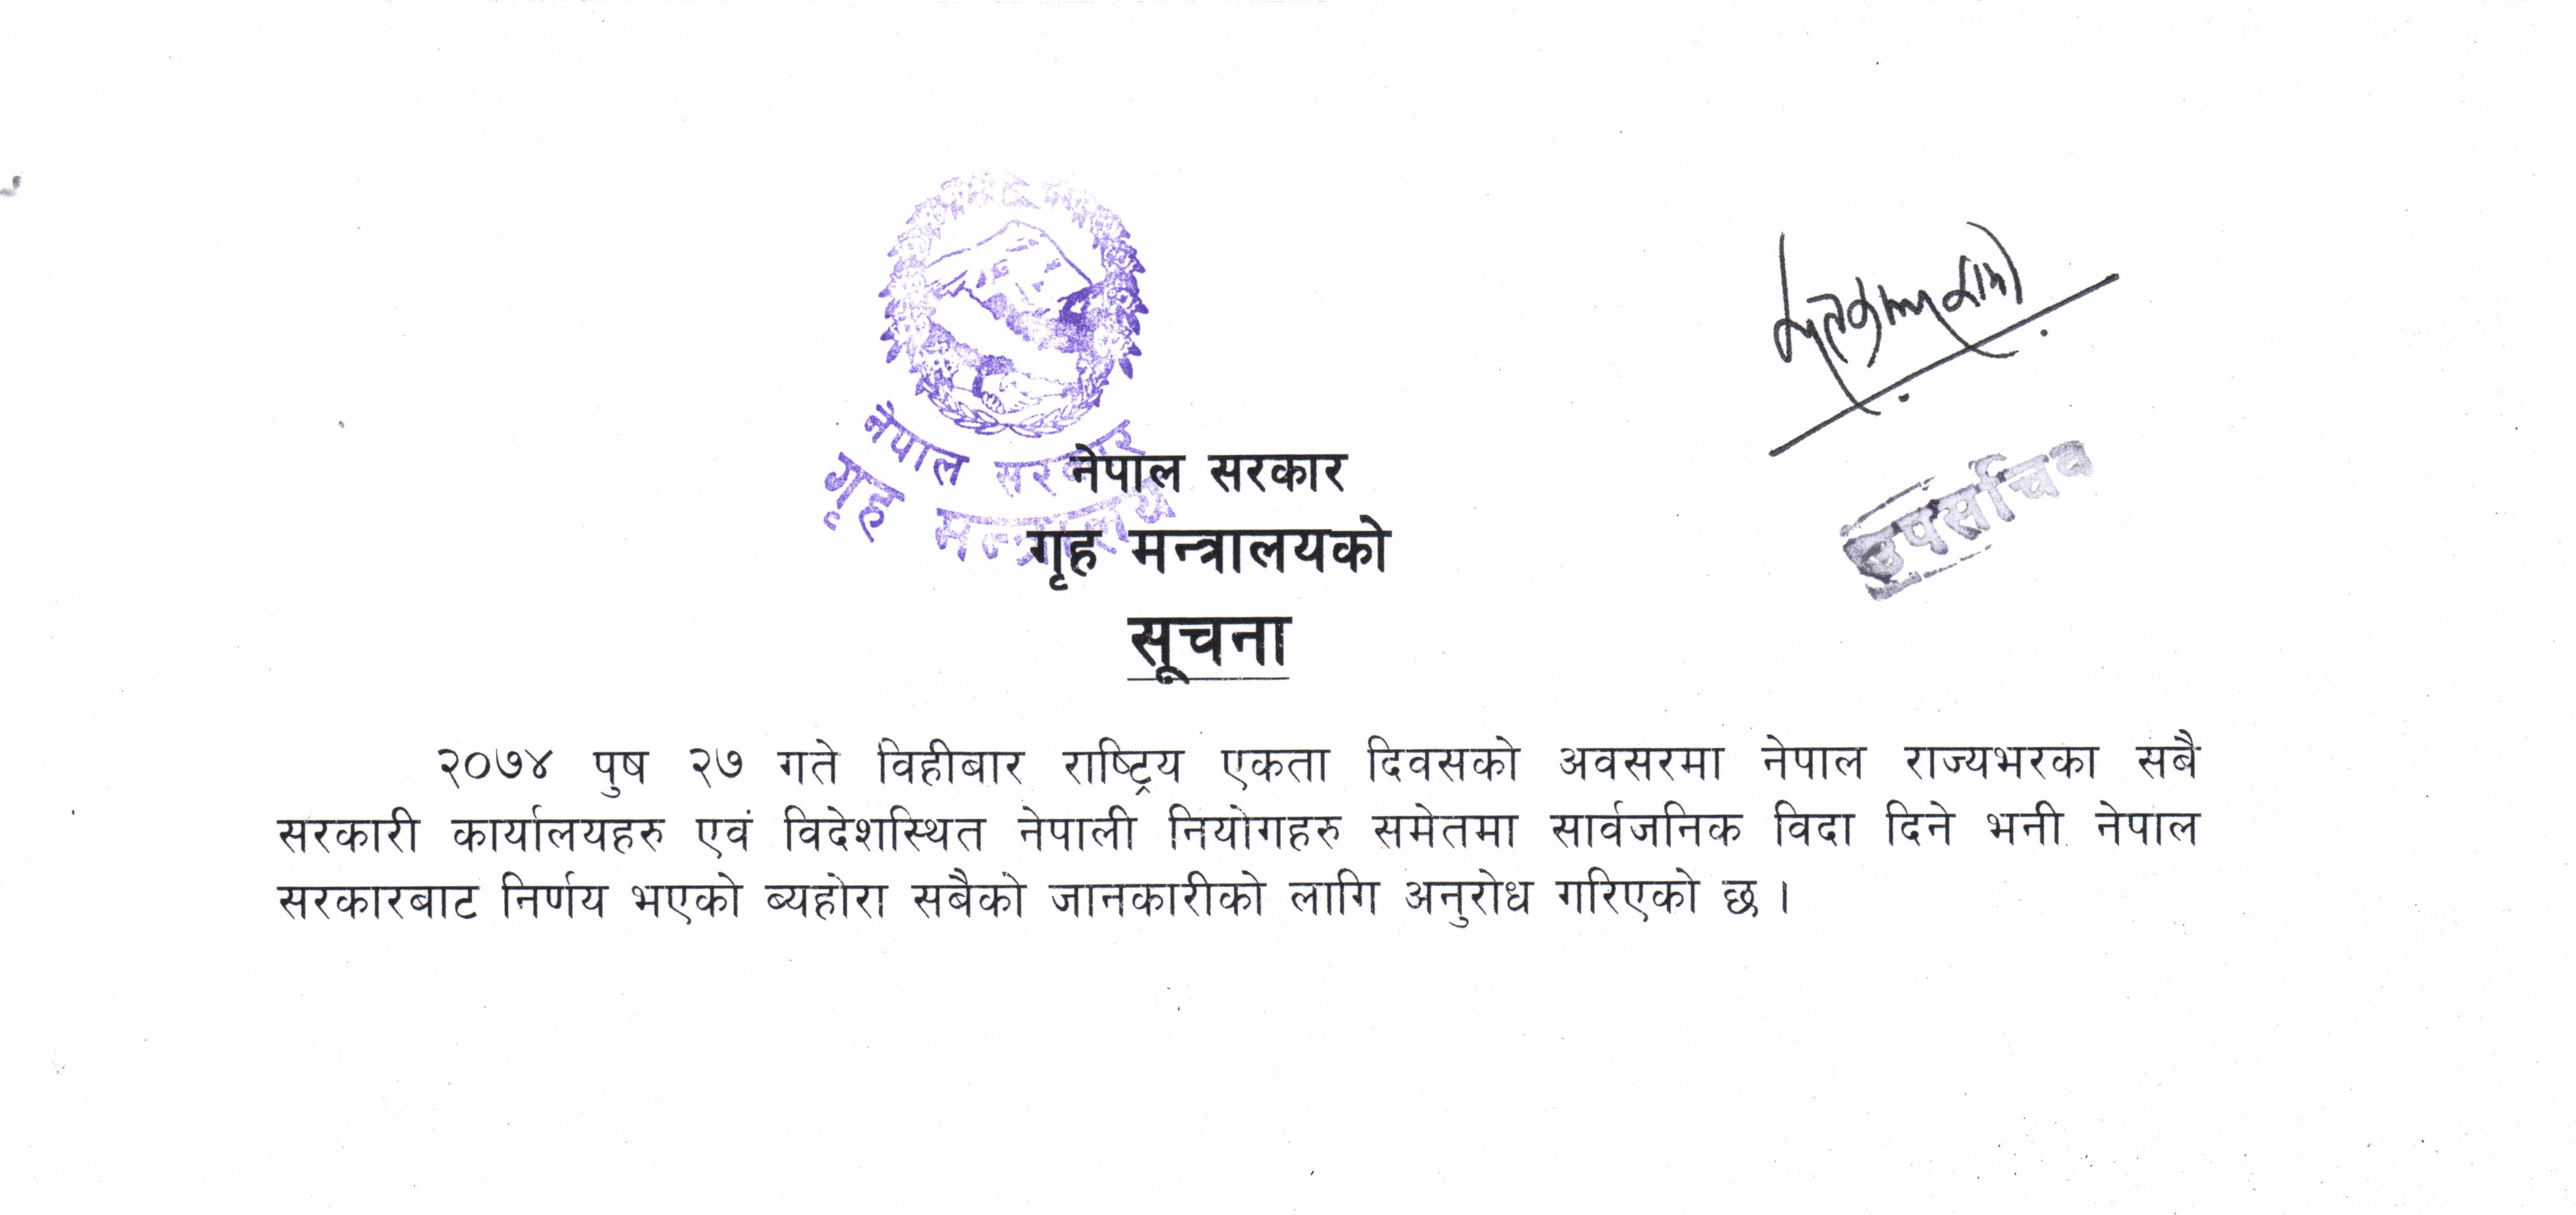 नेपाल सरकार
गृह मन्त्रालय
नेपाल सरकार
गृह मन्त्रालयको
सूचना
उपसचिव
२०७४ पुष २७ गते विहीबार राष्ट्रिय एकता दिवसको अवसरमा नेपाल राज्यभरका सबै
सरकारी कार्यालयहरु एवं विदेशस्थित नेपाली नियोगहरु समेतमा सार्वजनिक विदा दिने भनी नेपाल
सरकारबाट निर्णय भएको ब्यहोरा सबैको जानकारीको लागि अनुरोध गरिएको छ ।